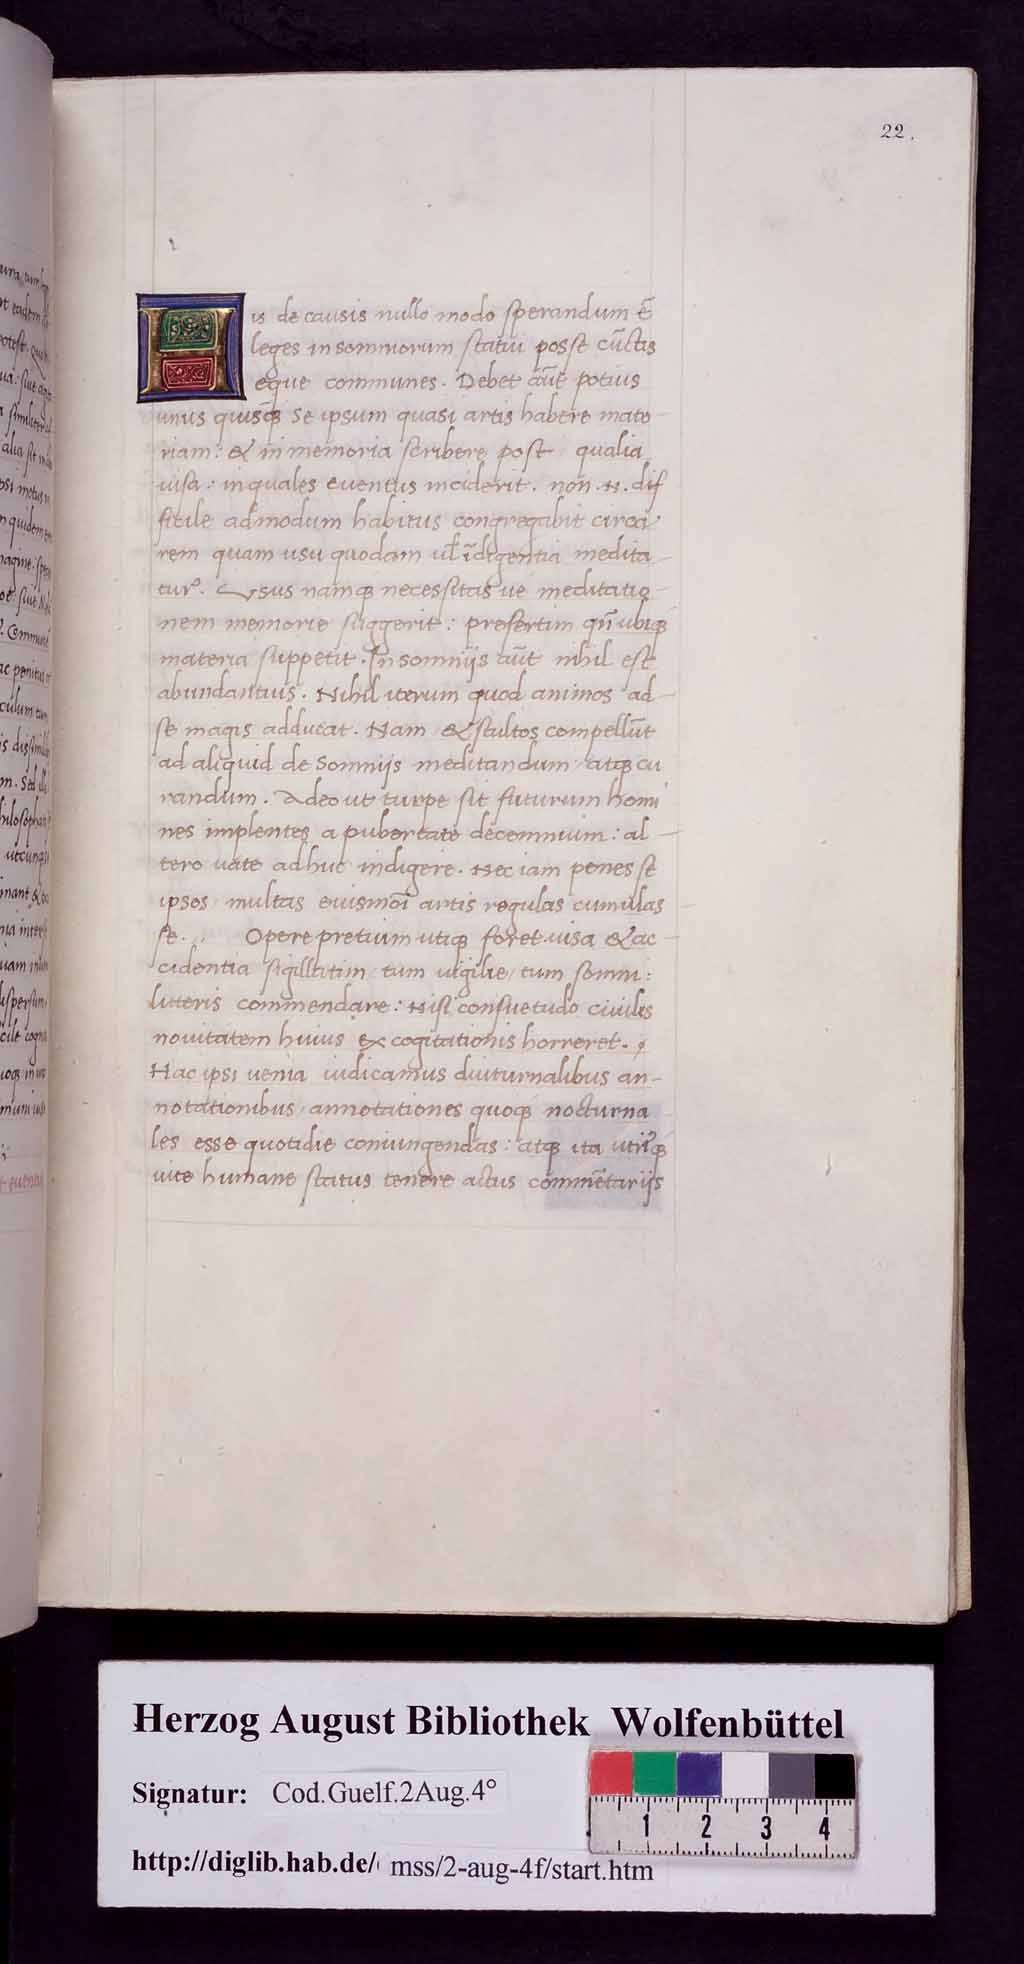 22.
His de causis nullo modo sperandum ē
leges insomniorum statui posse cūctis
eque communes. Debet aūt potius
unus quisq̢ se ipsum quasi artis habere mate
riam: & in memoria scribere post qualia
uisa: in quales euentus inciderit. non .n. dif
ficile admodum habitus congregabit circa
rem quam usu quodam ul' īdigentia medita-
tur. Usus namq̢ necessitas ue meditatio-
nem memorie suggerit: presertim qn̄ ubiq̢
materia suppetit. In somniis aūt nihil est
abundantius. Nihil iterum quod animos ad
se magis adducat. Nam & stultos compellūt
ad aliquid de somniis meditandum atq̢ cu
randum. Adeo ut turpe sit futurum homi
nes implentes a pubertate decennium: al-
tero uate adhuc indigere. Nec iam penes se
ipsos multas euismoī artis regulas cumulas
se. Opere pretium utiq̢ foret uisa & ac-
cidentia sigillatim tum uigilie, tum somni:
litteris commendare: Nisi consuetudo ciuiles
nouitatem huius excogitationis horreret.
Hac ipsi uenia iudicamus diuturnalibus an-
notationibus annotationes quoq̢ nocturna
les esse quotidie coniungendas: atq̢ ita utriusq̢
uite humane status tenere actus commētariis
Herzog August Bibliothek Wolfenbüttel
Signatur: Cod.Guelf.2Aug.4°
1 2 3 4
http://diglib.hab.de/ mss/2-aug-4f/start.htm